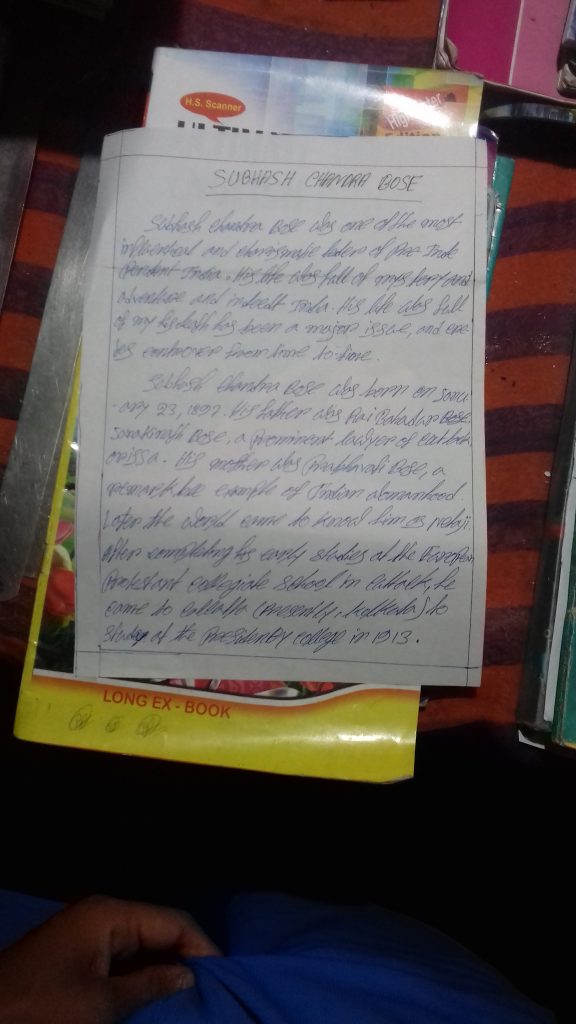 H.S. Scanner
Edition
SUBHASH CHANDRA BOSE
Subhash Chandra Bose was one of the most
influential and charismatic leders of Pre Inde
pendent India. His life was full of mystery and
adventure and India. His life was full
of my his death has been a major issue, and
controver from time to-time.
Subhash Chandra Bose was born on Janu
-ary 23, 1897. His father was Rai Bahadur Bose
Janakinath Bose, a prominent lawyer of
orissa. His mother was Prabhavati Bose, a
remarkable example of Indian womanhood.
Later the world came to know him as Netaji.
After completing his early studies at the European
Protestant collegiate school in cuttack, he
came to calcutta (Presently, kolkata) to
study at the Presidency college in 1913.
LONG EX - BOOK